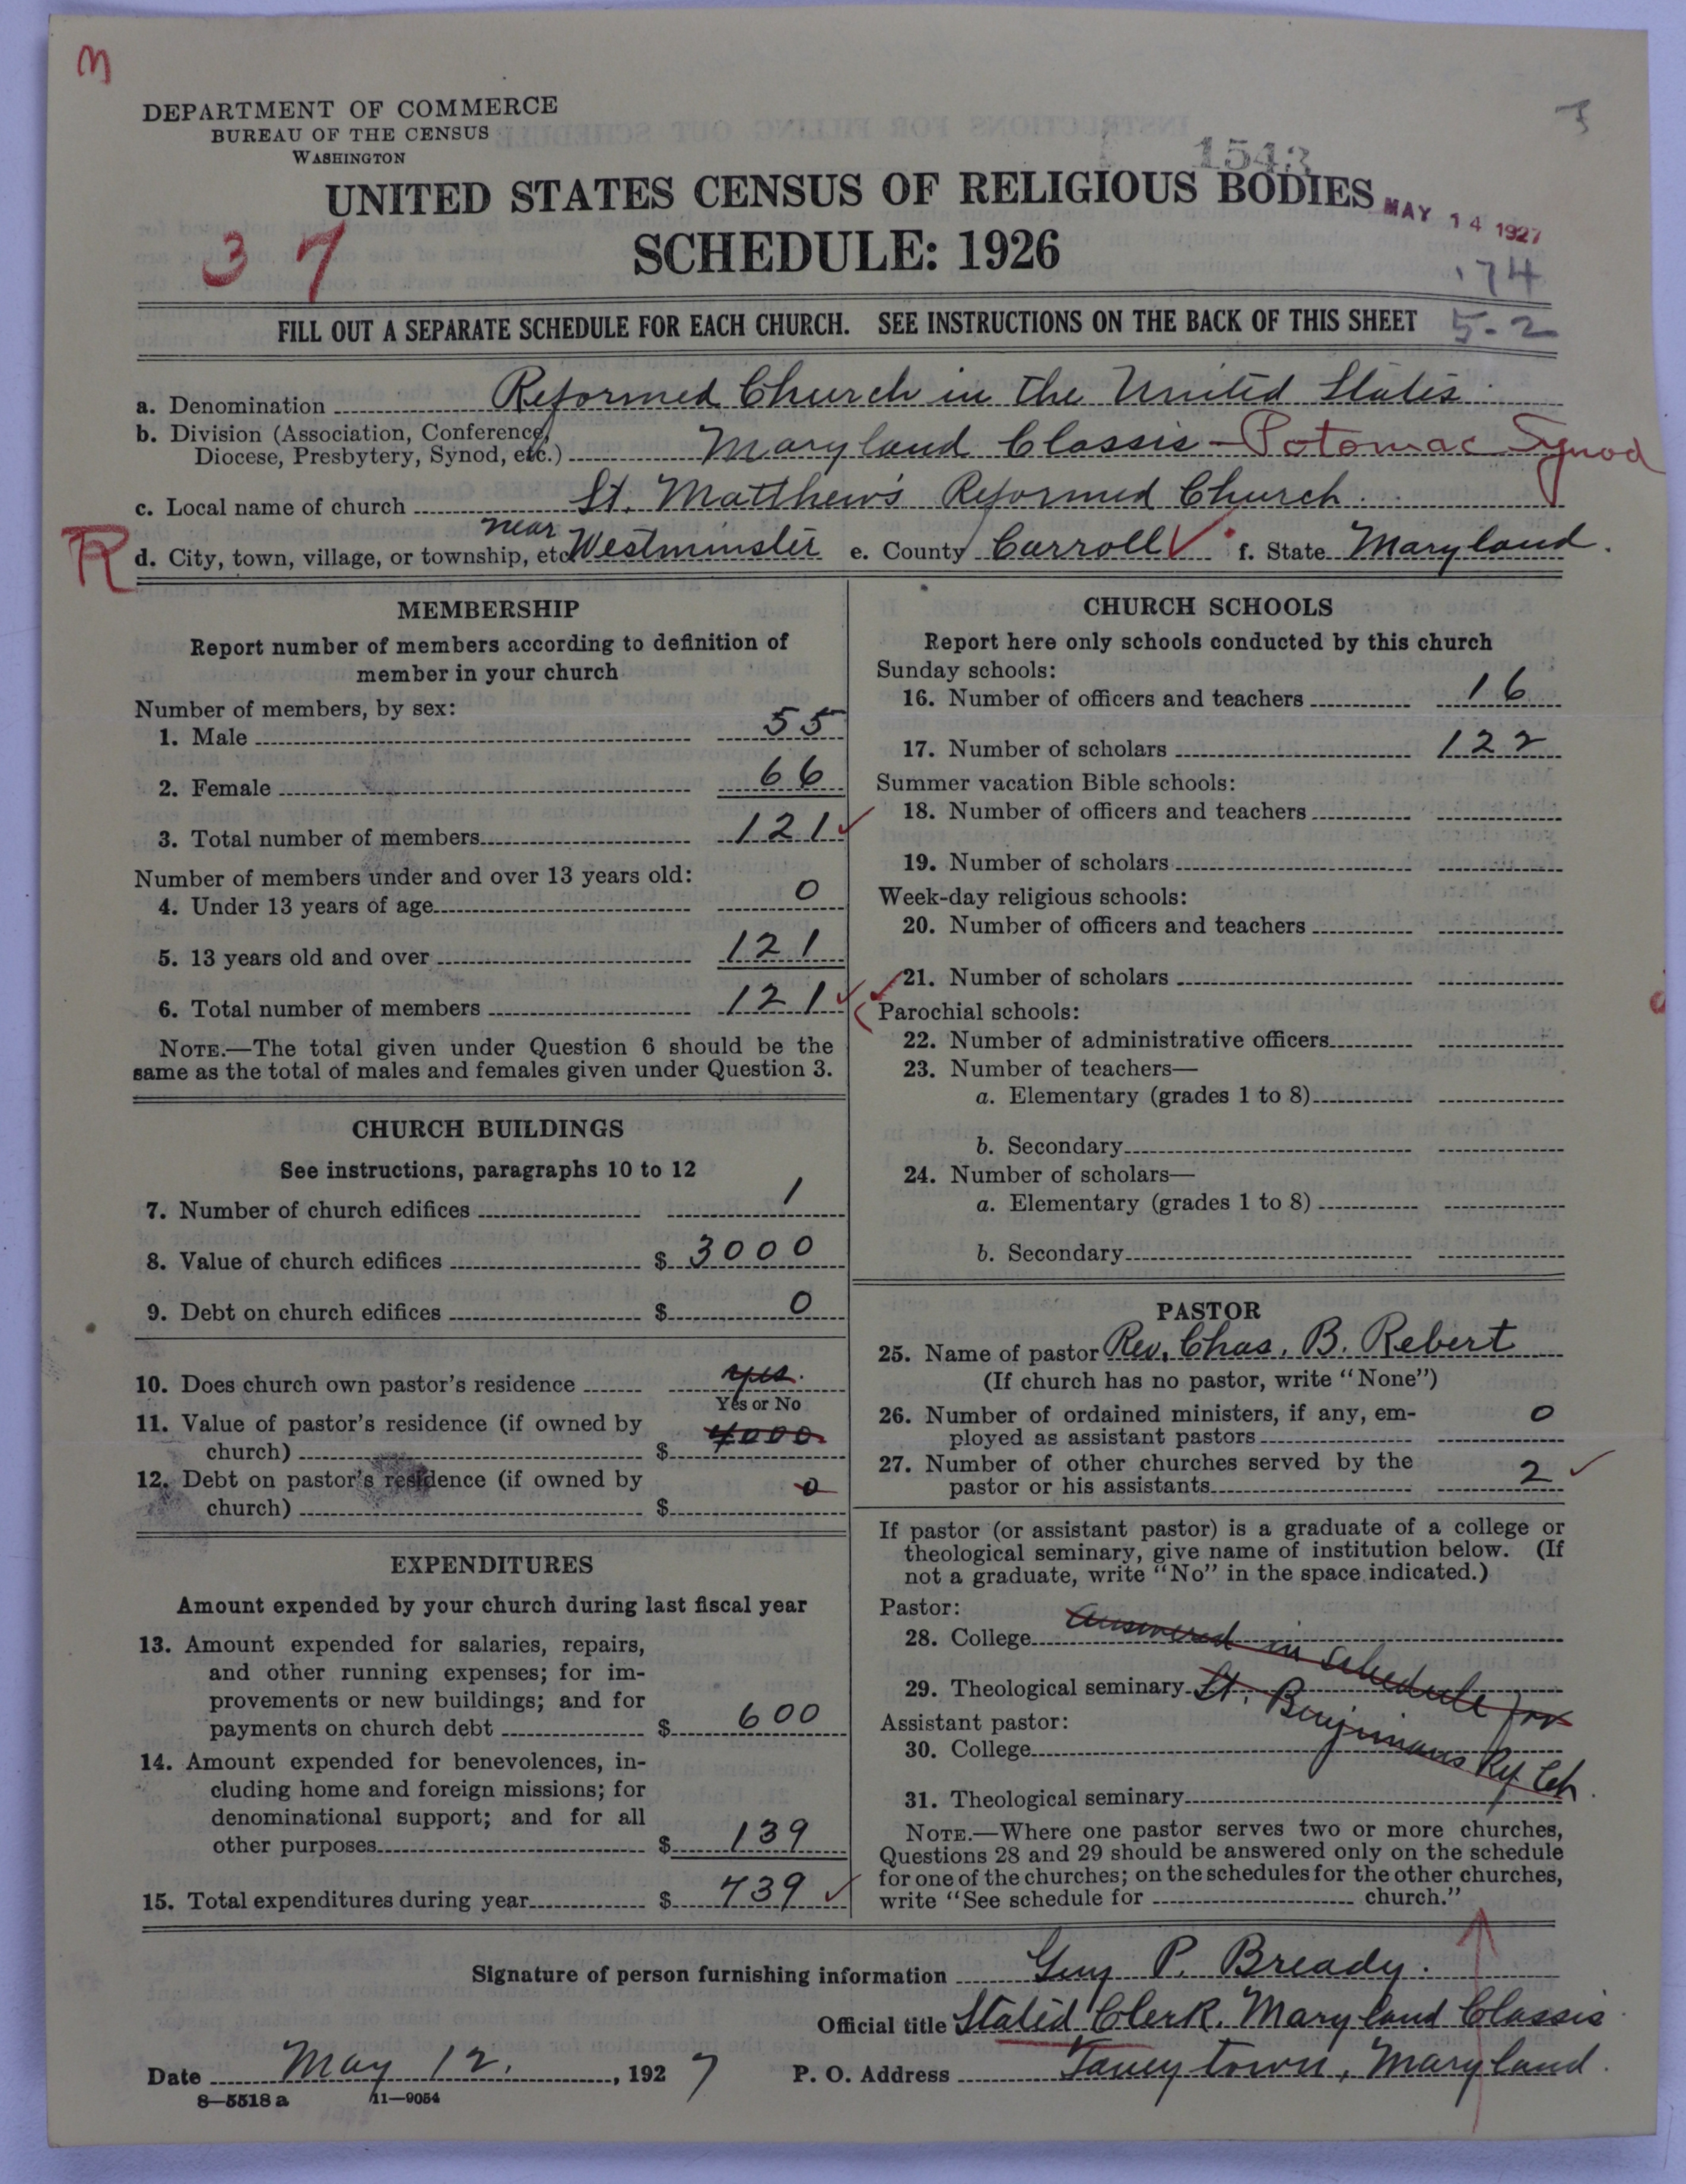 M
DEPARTMENT OF COMMERCE
BUREAU OF THE CENSUS
WASHINGTON
1543
UNITED STATES CENSUS OF RELIGIOUS BODIES
MAY 14 1927
37
SCHEDULE: 1926
174
FILL OUT A SEPARATE SCHEDULE FOR EACH CHURCH. SEE INSTRUCTIONS ON THE BACK OF THIS SHEET
5-2
a. Denomination Reformed Church in the United States
b. Division (Association, Conference,
Diocese, Presbytery, Synod, etc.) Maryland Classis - Potomac Synod
c. Local name of church St. Matthew's Reformed Church
R
d. City, town, village, or township, etc. near Westminster e. County Carroll f. State Maryland.
MEMBERSHIP
Report number of members according to definition of
member in your church
Number of members, by sex:
1. Male 55
2. Female 66
3. Total number of members 121
Number of members under and over 13 years old:
4. Under 13 years of age 0
5. 13 years old and over 121
6. Total number of members 121
NOTE.—The total given under Question 6 should be the
same as the total of males and females given under Question 3.
CHURCH BUILDINGS
See instructions, paragraphs 10 to 12
7. Number of church edifices 1
8. Value of church edifices $ 3000
9. Debt on church edifices $ 0
10. Does church own pastor's residence yes.
Yes or No
11. Value of pastor's residence (if owned by
church) $ 4000
12. Debt on pastor's residence (if owned by
church) $ 0
EXPENDITURES
Amount expended by your church during last fiscal year
13. Amount expended for salaries, repairs,
and other running expenses; for im-
provements or new buildings; and for
payments on church debt $ 600
14. Amount expended for benevolences, in-
cluding home and foreign missions; for
denominational support; and for all
other purposes $ 139
15. Total expenditures during year $ 739
CHURCH SCHOOLS
Report here only schools conducted by this church
Sunday schools:
16. Number of officers and teachers 16
17. Number of scholars 122
Summer vacation Bible schools:
18. Number of officers and teachers
19. Number of scholars
Week-day religious schools:
20. Number of officers and teachers
21. Number of scholars
Parochial schools:
22. Number of administrative officers
23. Number of teachers—
a. Elementary (grades 1 to 8)
b. Secondary
24. Number of scholars—
a. Elementary (grades 1 to 8)
b. Secondary
PASTOR
25. Name of pastor Rev. Chas. B. Rebert
(If church has no pastor, write "None")
26. Number of ordained ministers, if any, em-
ployed as assistant pastors 0
27. Number of other churches served by the
pastor or his assistants 2
If pastor (or assistant pastor) is a graduate of a college or
theological seminary, give name of institution below. (If
not a graduate, write "No" in the space indicated.)
Pastor:
28. College answered in schedule for
29. Theological seminary St. Benjimans Ref Ch.
Assistant pastor:
30. College
31. Theological seminary
NOTE.—Where one pastor serves two or more churches,
Questions 28 and 29 should be answered only on the schedule
for one of the churches; on the schedules for the other churches,
write "See schedule for church."
Signature of person furnishing information Guy P. Bready.
Official title Stated Clerk. Maryland Classis
Date May 12. , 1927 P. O. Address Taneytown, Maryland.
8—5518 a 11—9054